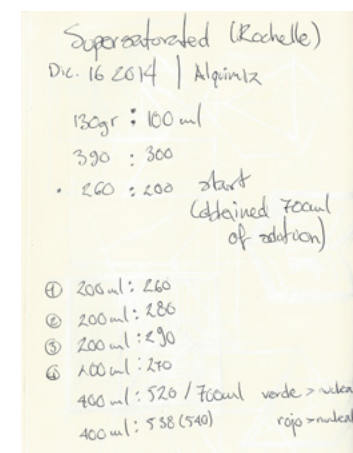 Supersaturated (Rochelle)
Dic. 16 2014 | Alquimia
130gr : 100 ml
390 : 300
• 260 : 200 start
(obtained 700ml
of solution)
① 200 ml : 260
② 200 ml : 280
③ 200 ml : 290
④ 200 ml : 270
400 ml : 520 / 700ml verde >
400 ml : 538 (540) rojo >